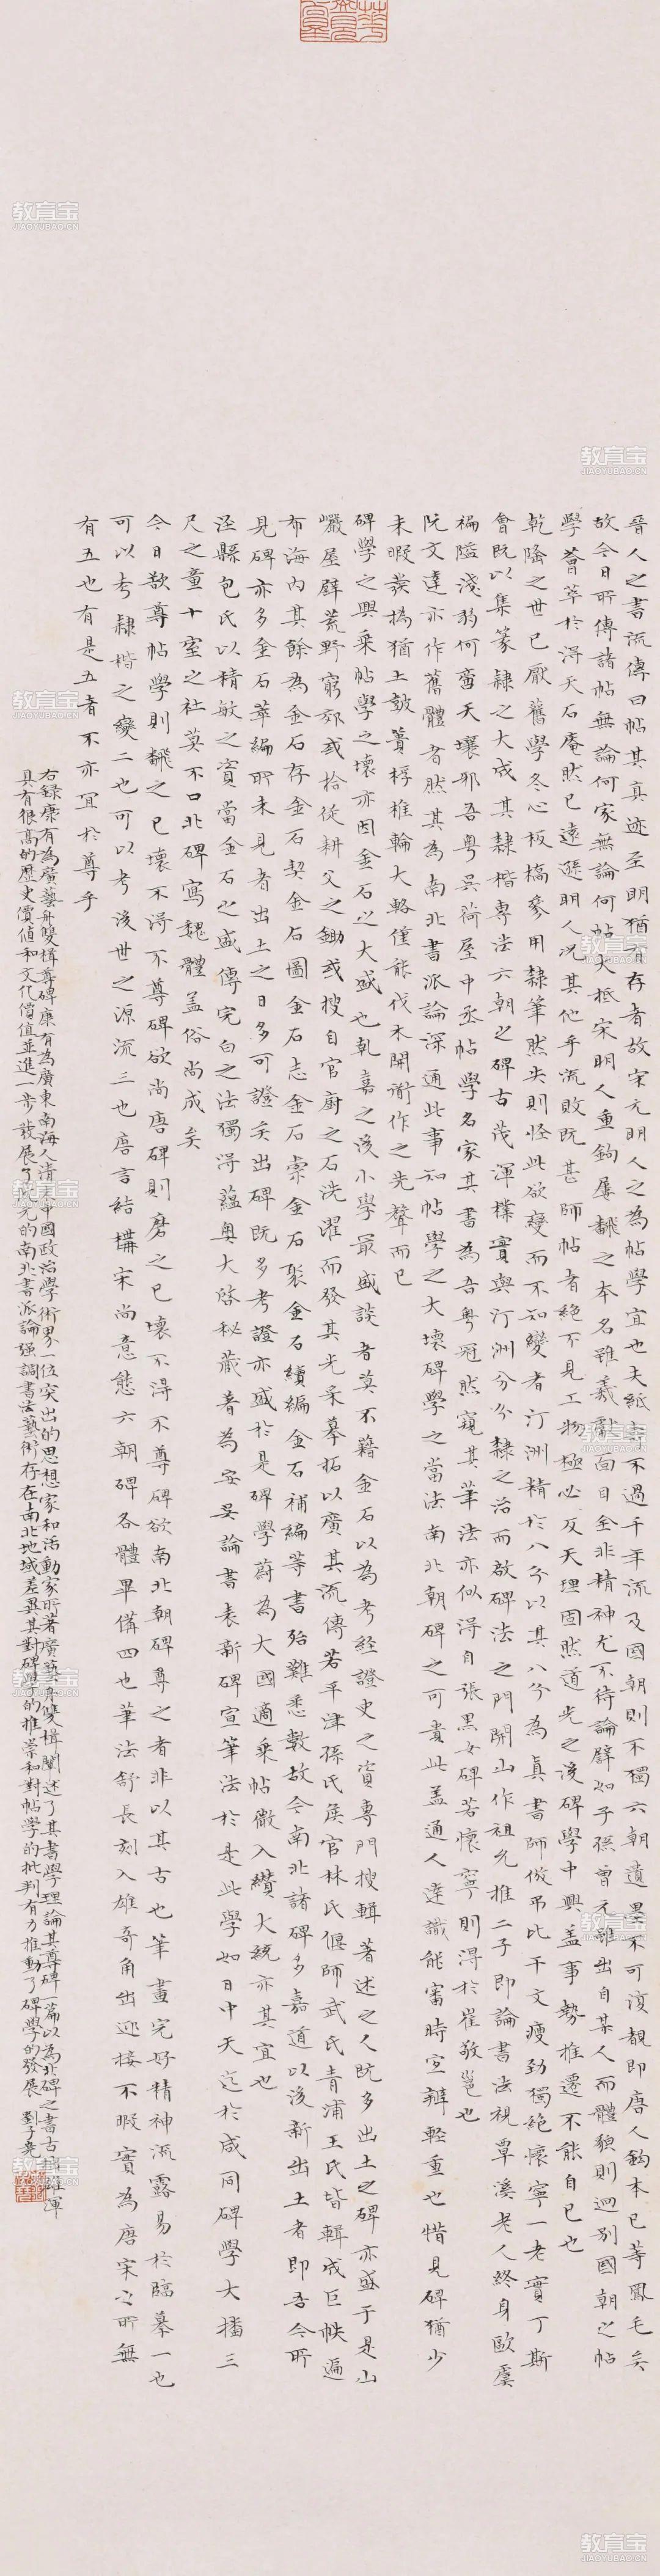 晉人之書流傳曰帖其真迹至明猶有存者故宋元明人之為帖學宜也夫紙壽不過千年流及國朝則不獨六朝遺墨不可復覩即唐人鈎本已等鳳毛矣
故今日所傳諸帖無論何家無論何帖大抵宋明人重鈎屢翻之本名雖羲獻面目全非精神尤不待論譬如子孫曾元雖出自某人而體貌則迥別國朝之帖
學薈萃於得天石庵然已遠遜明人況其他乎流敗既甚師帖者絕不見工物極必反天理固然道光之後碑學中興蓋事勢推遷不能自已也
乾隆之世已厭舊學冬心板橋參用隸筆然失則怪此欲變而不知變者汀洲精於八分以其八分為真書師倣吊比干文瘦勁獨絕懷寧一老實丁斯
會既以集篆隸之大成其隸楷專法六朝之碑古茂渾樸實與汀洲分分隸之治而啟碑法之門開山作祖允推二子即論書法視覃溪老人終身歐虞
褊隘淺豹何啻天壤邪吾粵吳荷屋中丞帖學名家其書為吾粵冠然窺其筆法亦似得自張黑女碑若懷寧則得於崔敬邕也
阮文達亦作舊體者然其為南北書派論深通此事知帖學之大壞碑學之當法南北朝碑之可貴此蓋通人達識能審時宜辨輕重也惜見碑猶少
未暇發撝猶土皷蕢桴椎輪大輅僅能伐木開道作之先聲而已
碑學之興乘帖學之壞亦因金石之大盛也乾嘉之後小學最盛談者莫不藉金石以為考經證史之資專門搜輯著述之人既多出土之碑亦盛于是山
巖屋壁荒野窮郊或拾從耕父之鋤或搜自官廚之石洗濯而發其光采摹拓以廣其流傳若平津孫氏侯官林氏偃師武氏青浦王氏皆輯成巨帙遍
布海內其餘為金石存金石契金石圖金石志金石索金石聚金石續編金石補編等書殆難悉數故今南北諸碑多嘉道以後新出土者即吾今所
見碑亦多金石萃編所未見者出土之日多可證矣出碑既多考證亦盛於是碑學蔚為大國適乘帖微入纘大統亦其宜也
涇縣包氏以精敏之資當金石之盛傳完白之法獨得蘊奧大啓秘藏著為安吳論書表新碑宣筆法於是此學如日中天迄於咸同碑學大播三
尺之童十室之社莫不口北碑寫魏體蓋俗尚成矣
今日欲尊帖學則翻之已壞不得不尊碑欲尚唐碑則磨之已壞不得不尊碑欲南北朝碑尊之者非以其古也筆畫完好精神流露易於臨摹一也
可以考隸楷之變二也可以考後世之源流三也唐言結構宋尚意態六朝碑各體畢備四也筆法舒長刻入雄奇角出迎接不暇實為唐宋之所無
有五也有是五者不亦宜於尊乎
右錄康有為廣藝舟雙楫尊碑康有為廣東南海人清末中國政治學術界一位突出的思想家和活動家所著廣藝舟雙楫闡述了其書學理論其尊碑一篇以為北碑之書古樸雄渾
具有很高的歷史價值和文化價值並進一步發展了阮元的南北書派論强調書法藝術存在南北地域差異其對碑學的推崇和對帖學的批判有力推動了碑學的發展 劉子堯
教育宝
JIAOYUBAO.CN